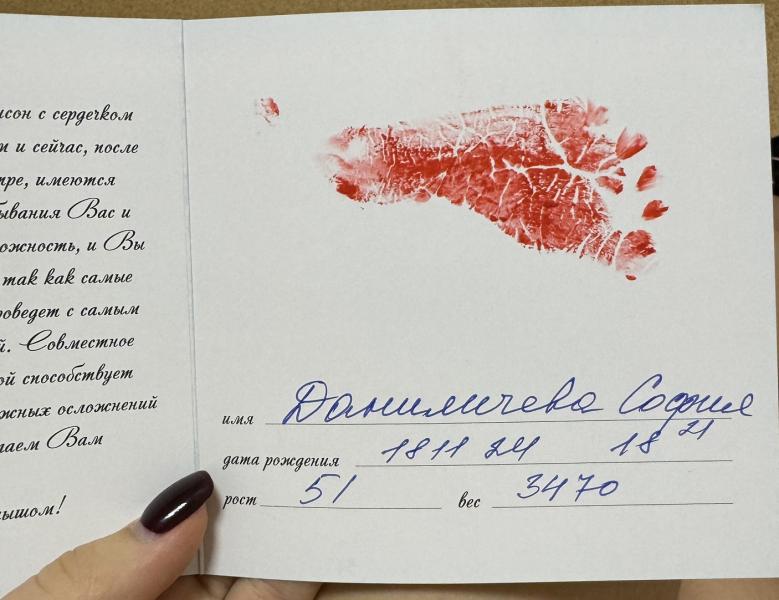 нсон с сердечком
т и сейчас, после
тре, имеются
бывания Вас и
ожность, и Вы
так как самые
роведет с самым
й. Совместное
ой способствует
жных осложнений
лаем Вам
ышом!
имя Даниличева София
дата рождения 1811 24 18 21
рост 51 вес 3470